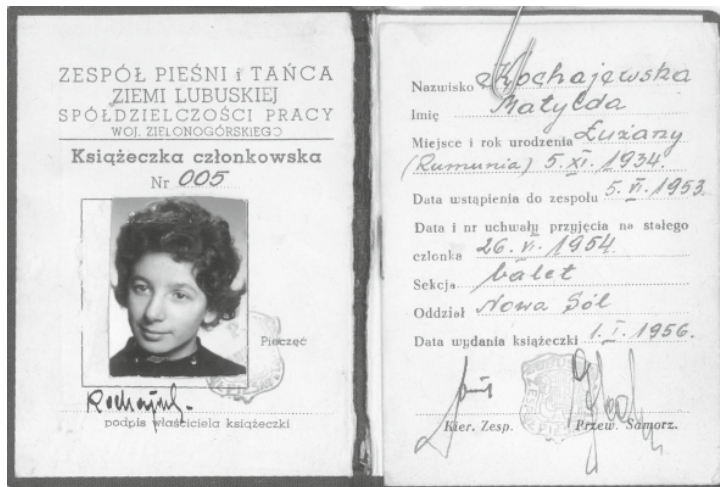 ZESPÓŁ PIEŚNI i TAŃCA
ZIEMI LUBUSKIEJ
SPÓŁDZIELCZOŚCI PRACY
WOJ. ZIELONOGÓRSKIEGO
Książeczka członkowska
Nr 005
Pieczęć
podpis właściciela książeczki
Nazwisko Kochajewska
Imię Matylda
Miejsce i rok urodzenia Łużany
(Rumunia) 5.XI.1934.
Data wstąpienia do zespołu 5.VI.1953.
Data i nr uchwały przyjęcia na stałego
członka 26.VI.1954.
Sekcja balet
Oddział Nowa Sól
Data wydania książeczki 1.I.1956.
Kier. Zesp. Przew. Samorz.